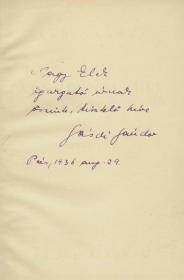 Nagy Elek
igazgató úrnak
őszinte, tisztelő híve
Sándor
Pécs, 1936 aug. 29.